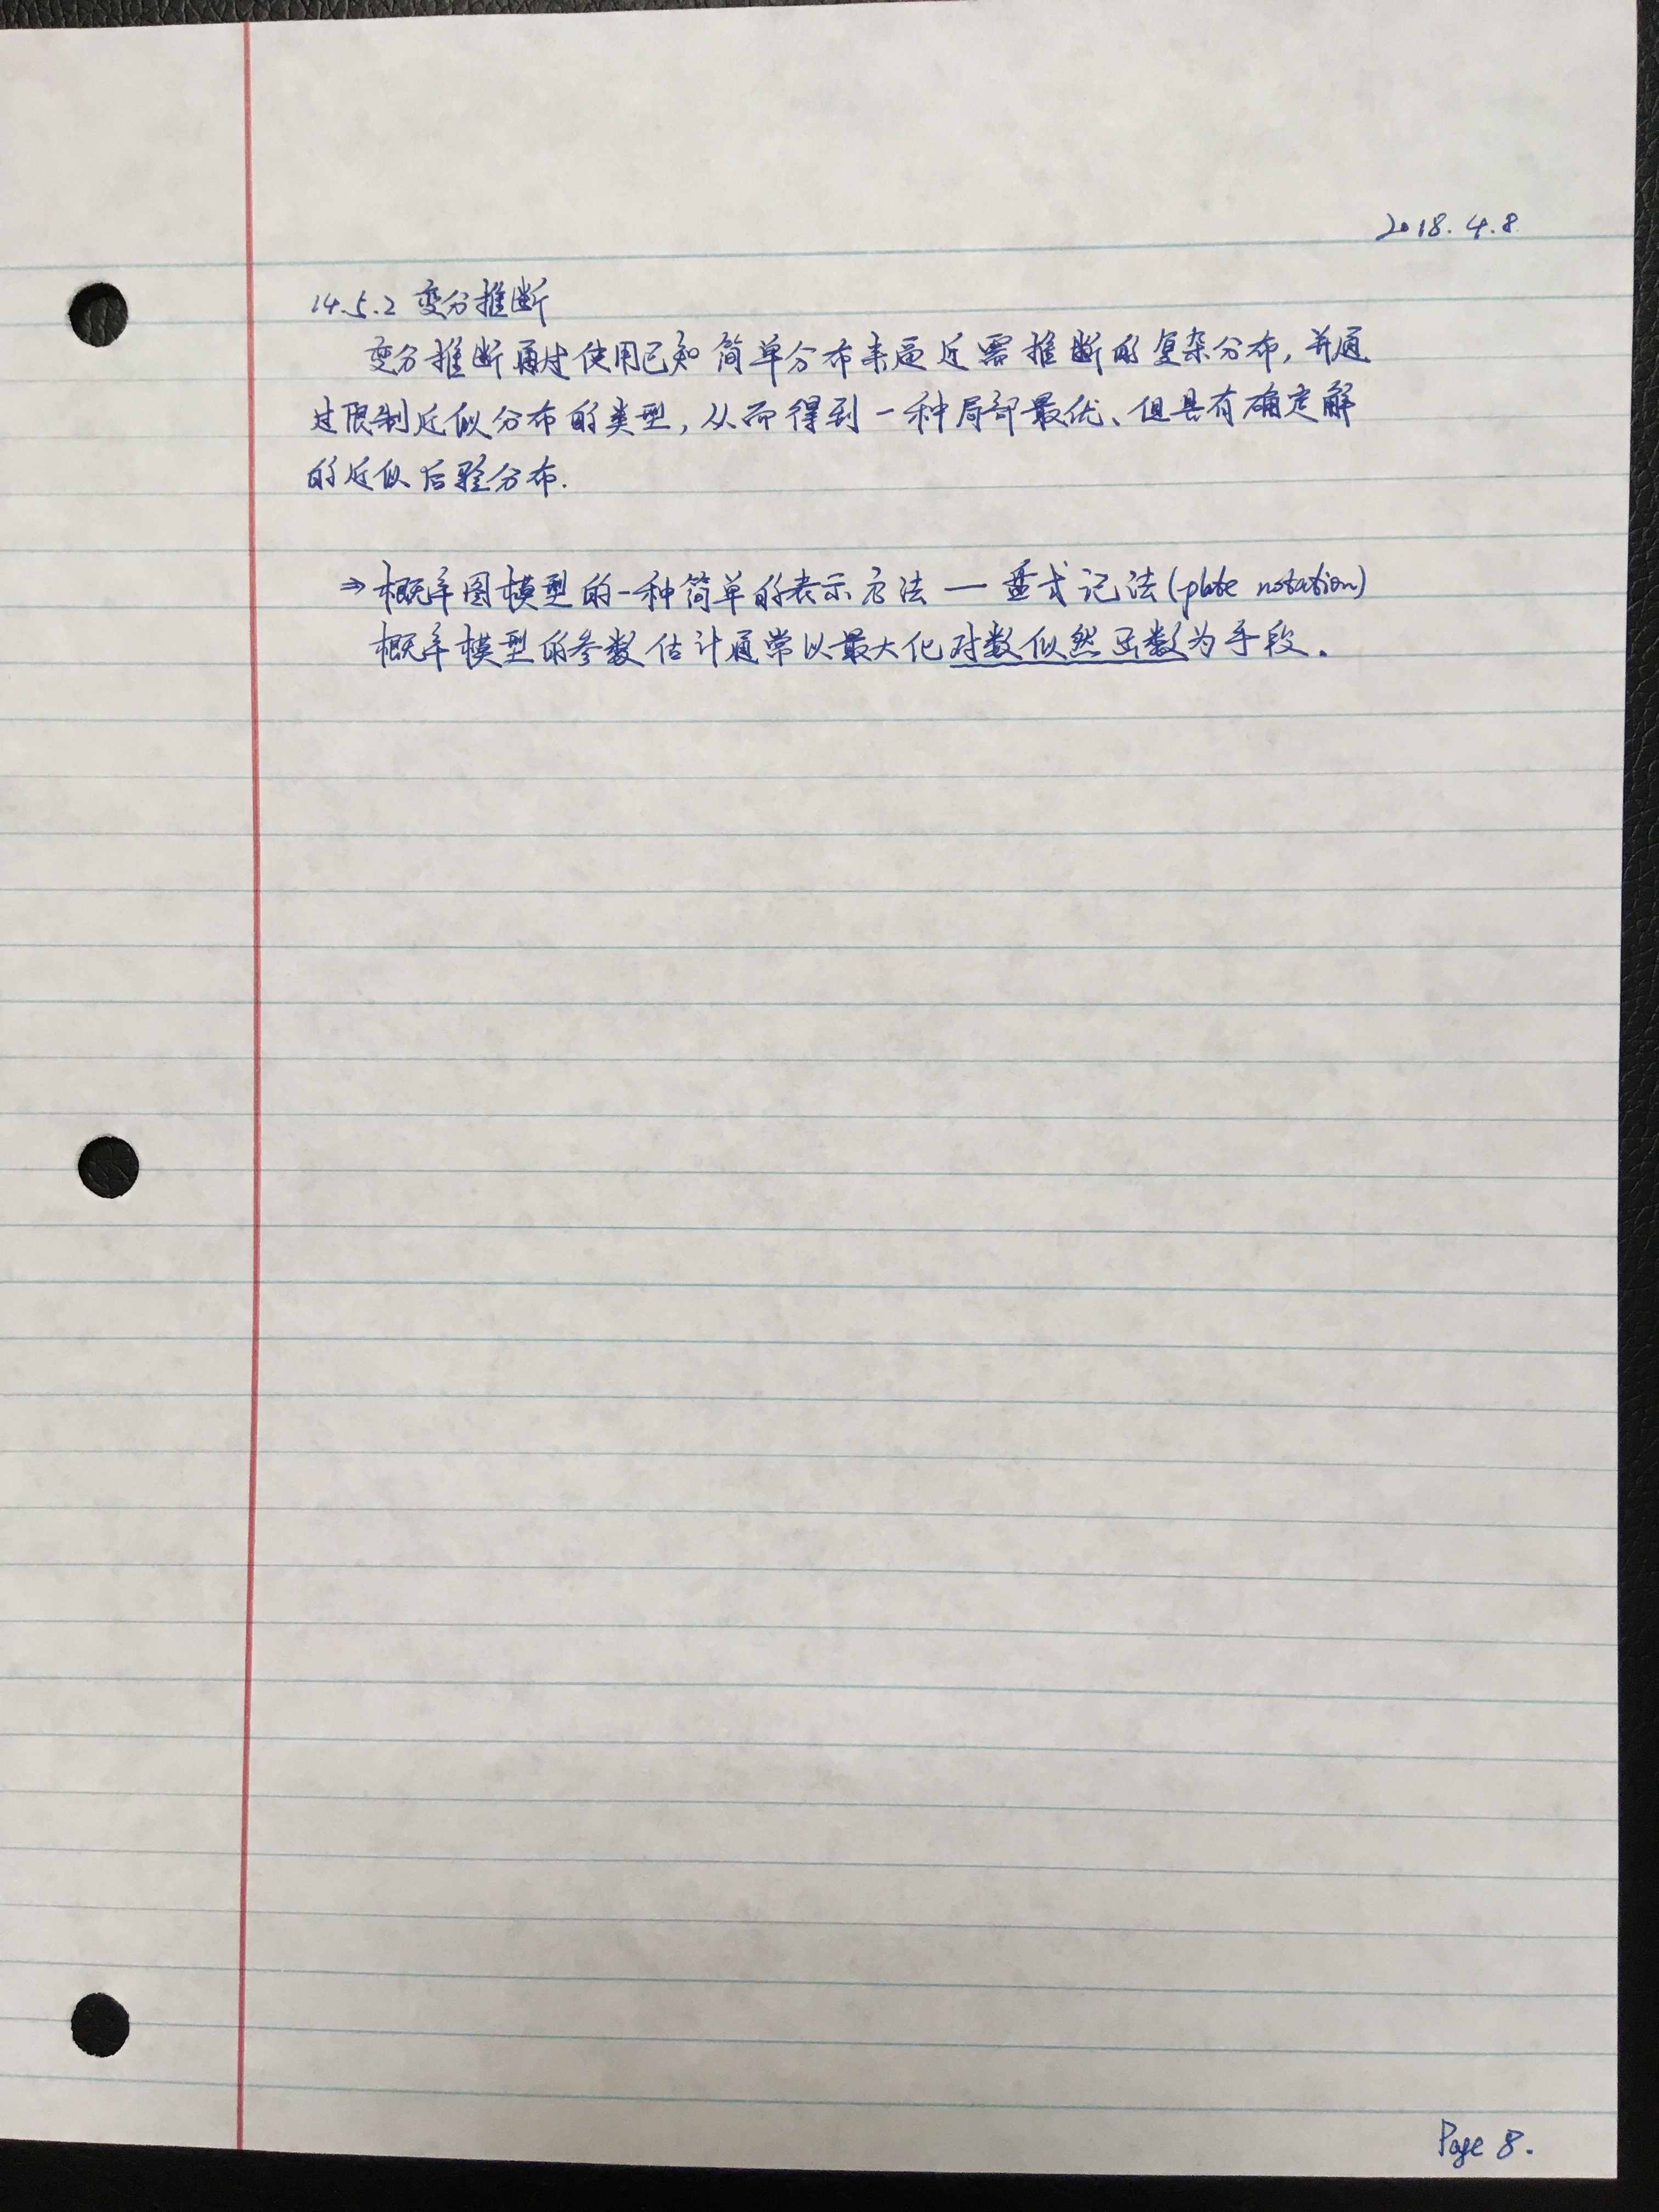 2018.4.8
14.5.2 变分推断
变分推断通过使用已知简单分布来逼近需推断的复杂分布,并通
过限制近似分布的类型,从而得到一种局部最优、但具有确定解
的近似后验分布.
⇒ 概率图模型的一种简单的表示方法 — 盘式记法(plate notation)
概率模型的参数估计通常以最大化对数似然函数为手段.
Page 8.